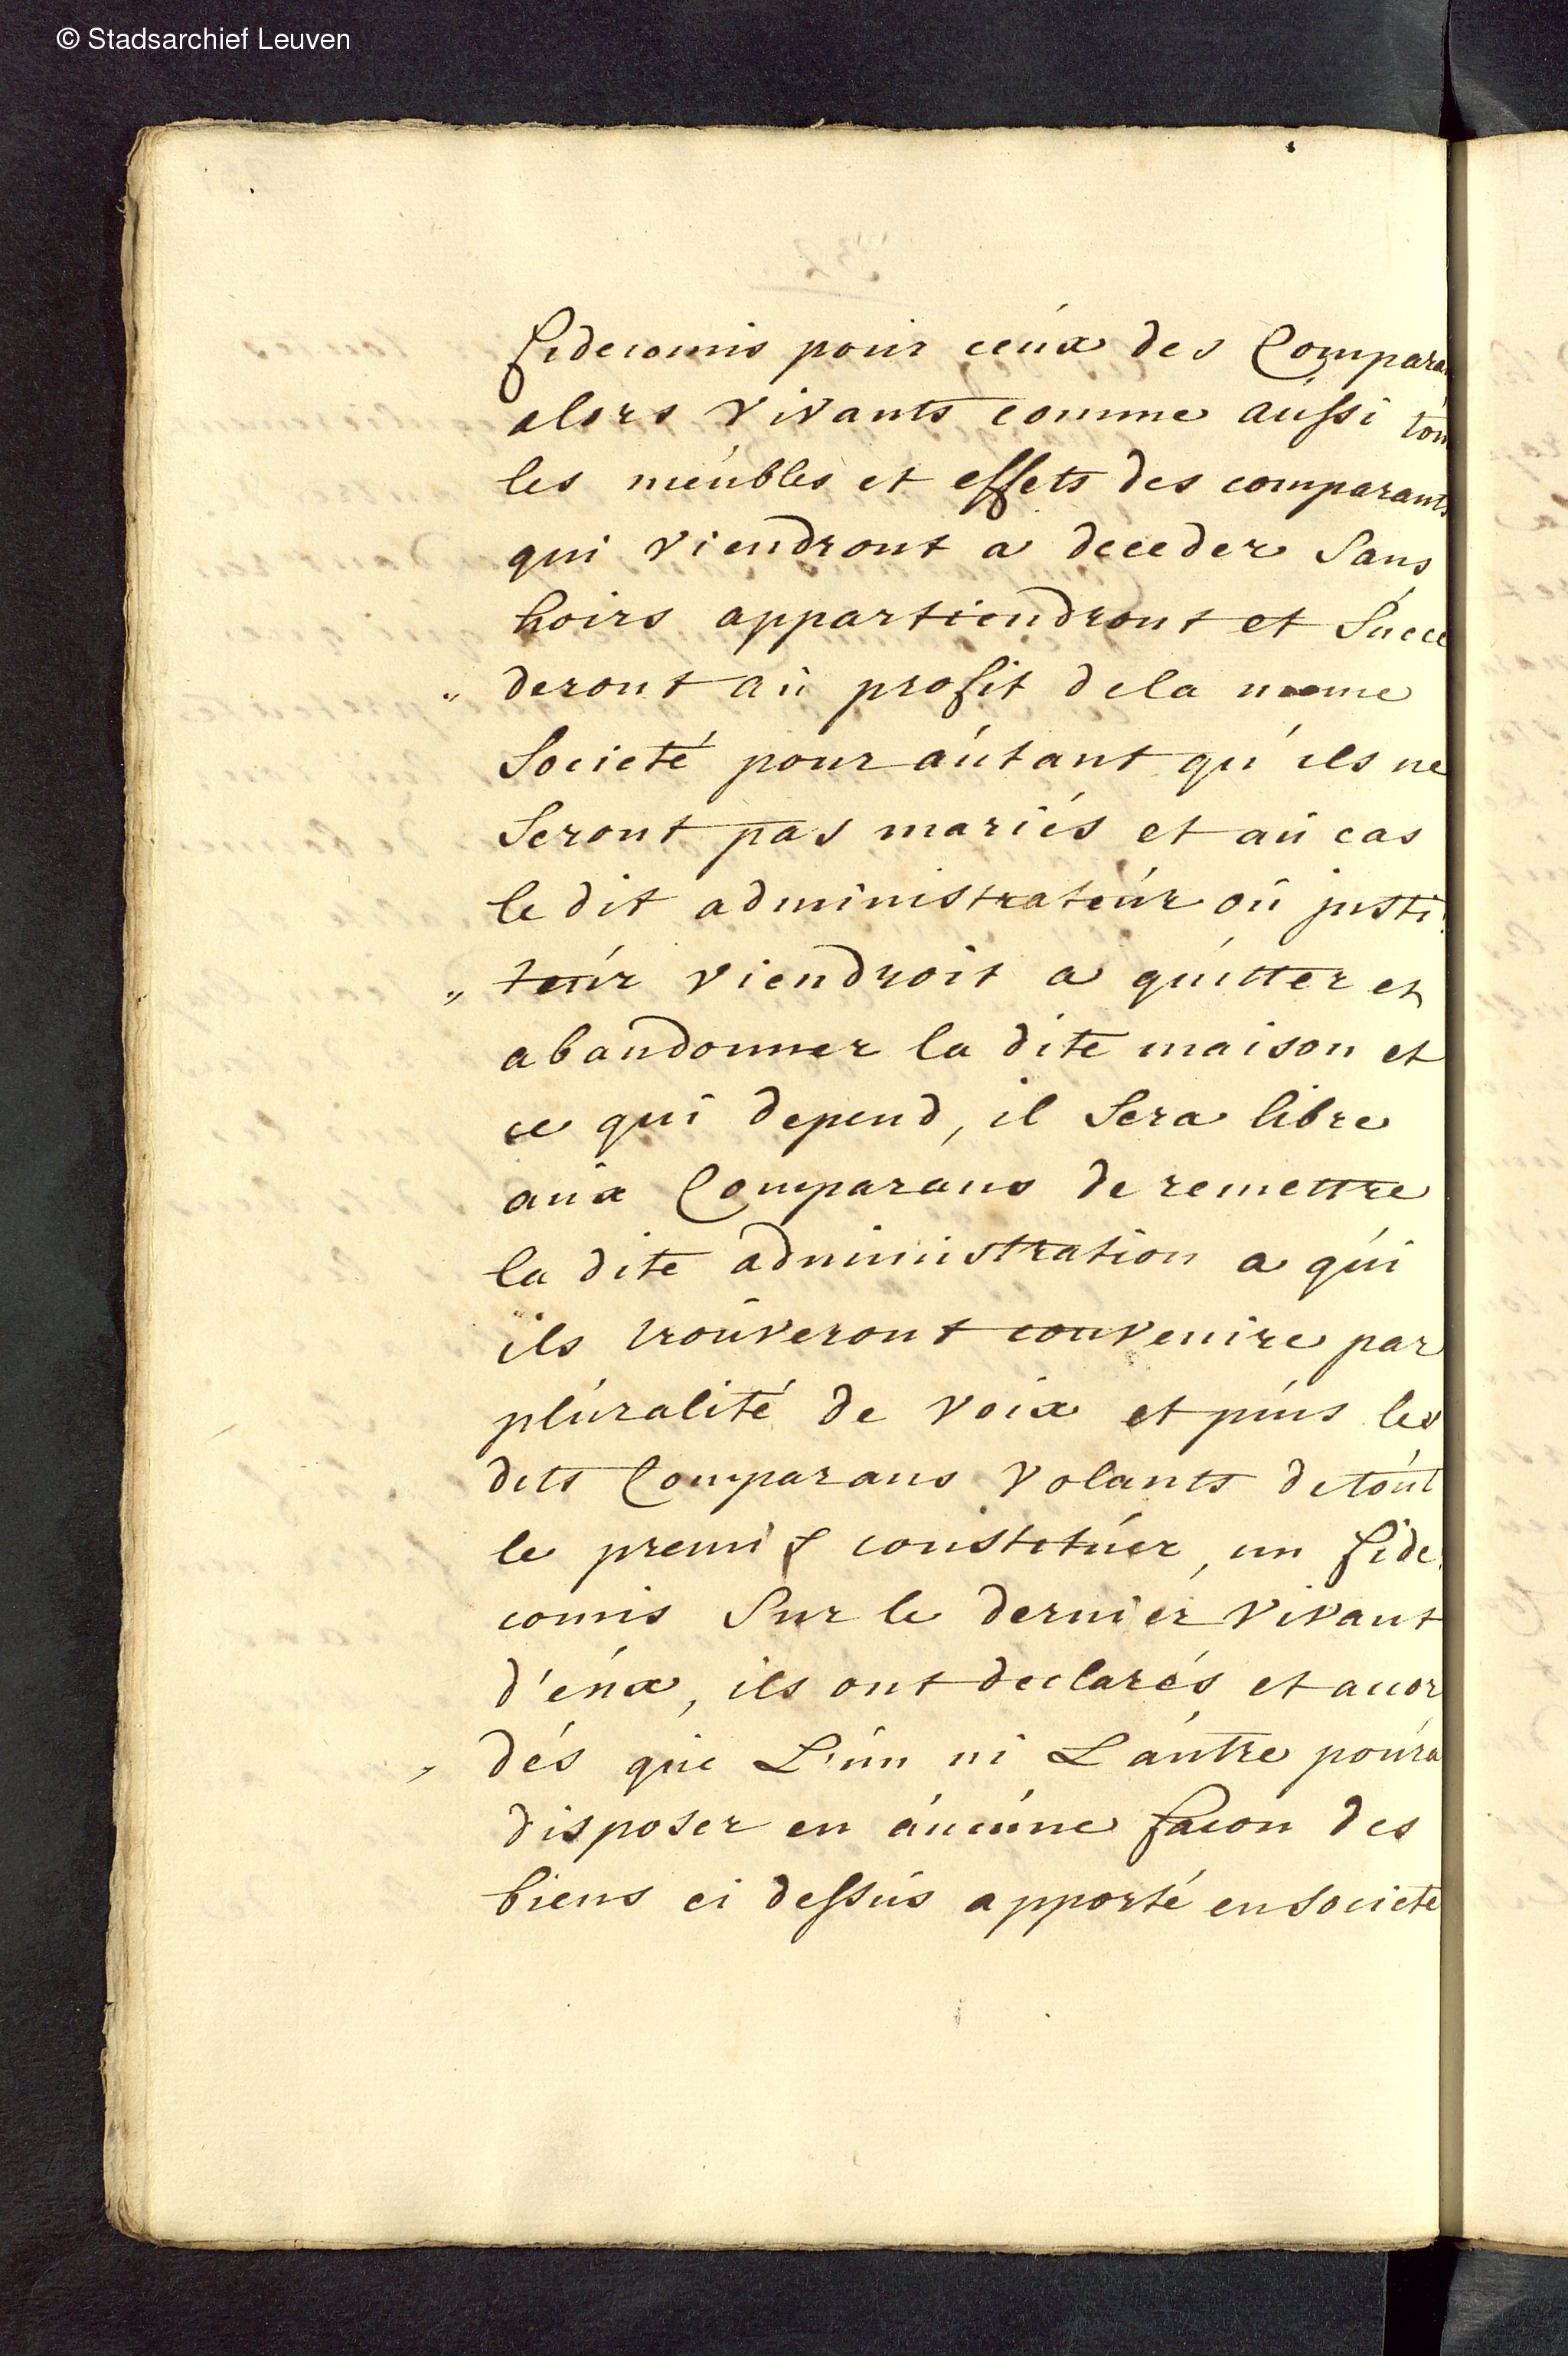 © Stadsarchief Leuven
fidecomis pour ceux des Compara
alors vivants comme aussi tou
les meubles et effets des comparants
qui viendront a deceder Sans
hoirs appartiendront et Succe
" deront au profit dela meme
Societé pour autant qu'ils ne
Seront pas mariés et au cas
le dit administrateur ou justi
" teur viendroit a quitter et
abandonner la dite maison et
ce qui depend, il Sera libre
aux Comparans de remettre
la dite administration a qui
ils trouveront convenire par
pluralité de voix et puis les
dits Comparans volants detout
le premis constituer, un fide
comis Sur le dernier vivant
d'eux, ils ont declarés et accor
dés que L'un ni L'autre poura
disposer en aucune facon des
biens ci dessus apporté en Societe